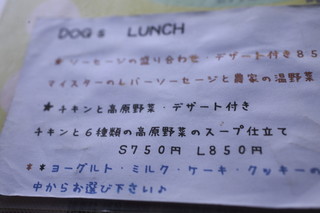 DOGs LUNCH
★ソーセージの盛り合わせ・デザート付き85
マイスターのレバーソーセージと農家の温野菜
★チキンと高原野菜・デザート付き
チキンと6種類の高原野菜のスープ仕立て
S750円 L850円
**ヨーグルト・ミルク・ケーキ・クッキーの
中からお選び下さい♪